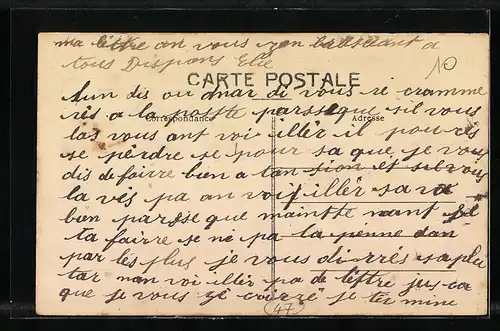 ma lettre an vous ran balsdant a
tous Dispans Elie
No
CARTE POSTALE
Correspondance
Adresse
Lun dis ou dmar di vous re cramme
rés a la postte parsseque sil vous
las vous ant voi illér il pou rés
se pérdre se pour sa que je vous
dis de fairre bien a tan sion et sil vous
la vés pa an voi illér sa va
bien parsse que maintte nant fil
ta fairre se né pa la penne dan
par lés plus je vous dirrés sa plu
tar nan voi illér pa de léttre jus ca
que je vous zé cairré je ter mine
47